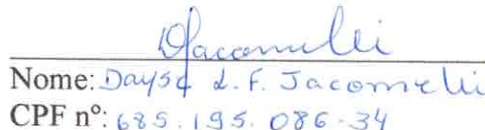 DJacomelli
Nome: Daysa L.F. Jacomelli
CPF nº: 685.195.086-34